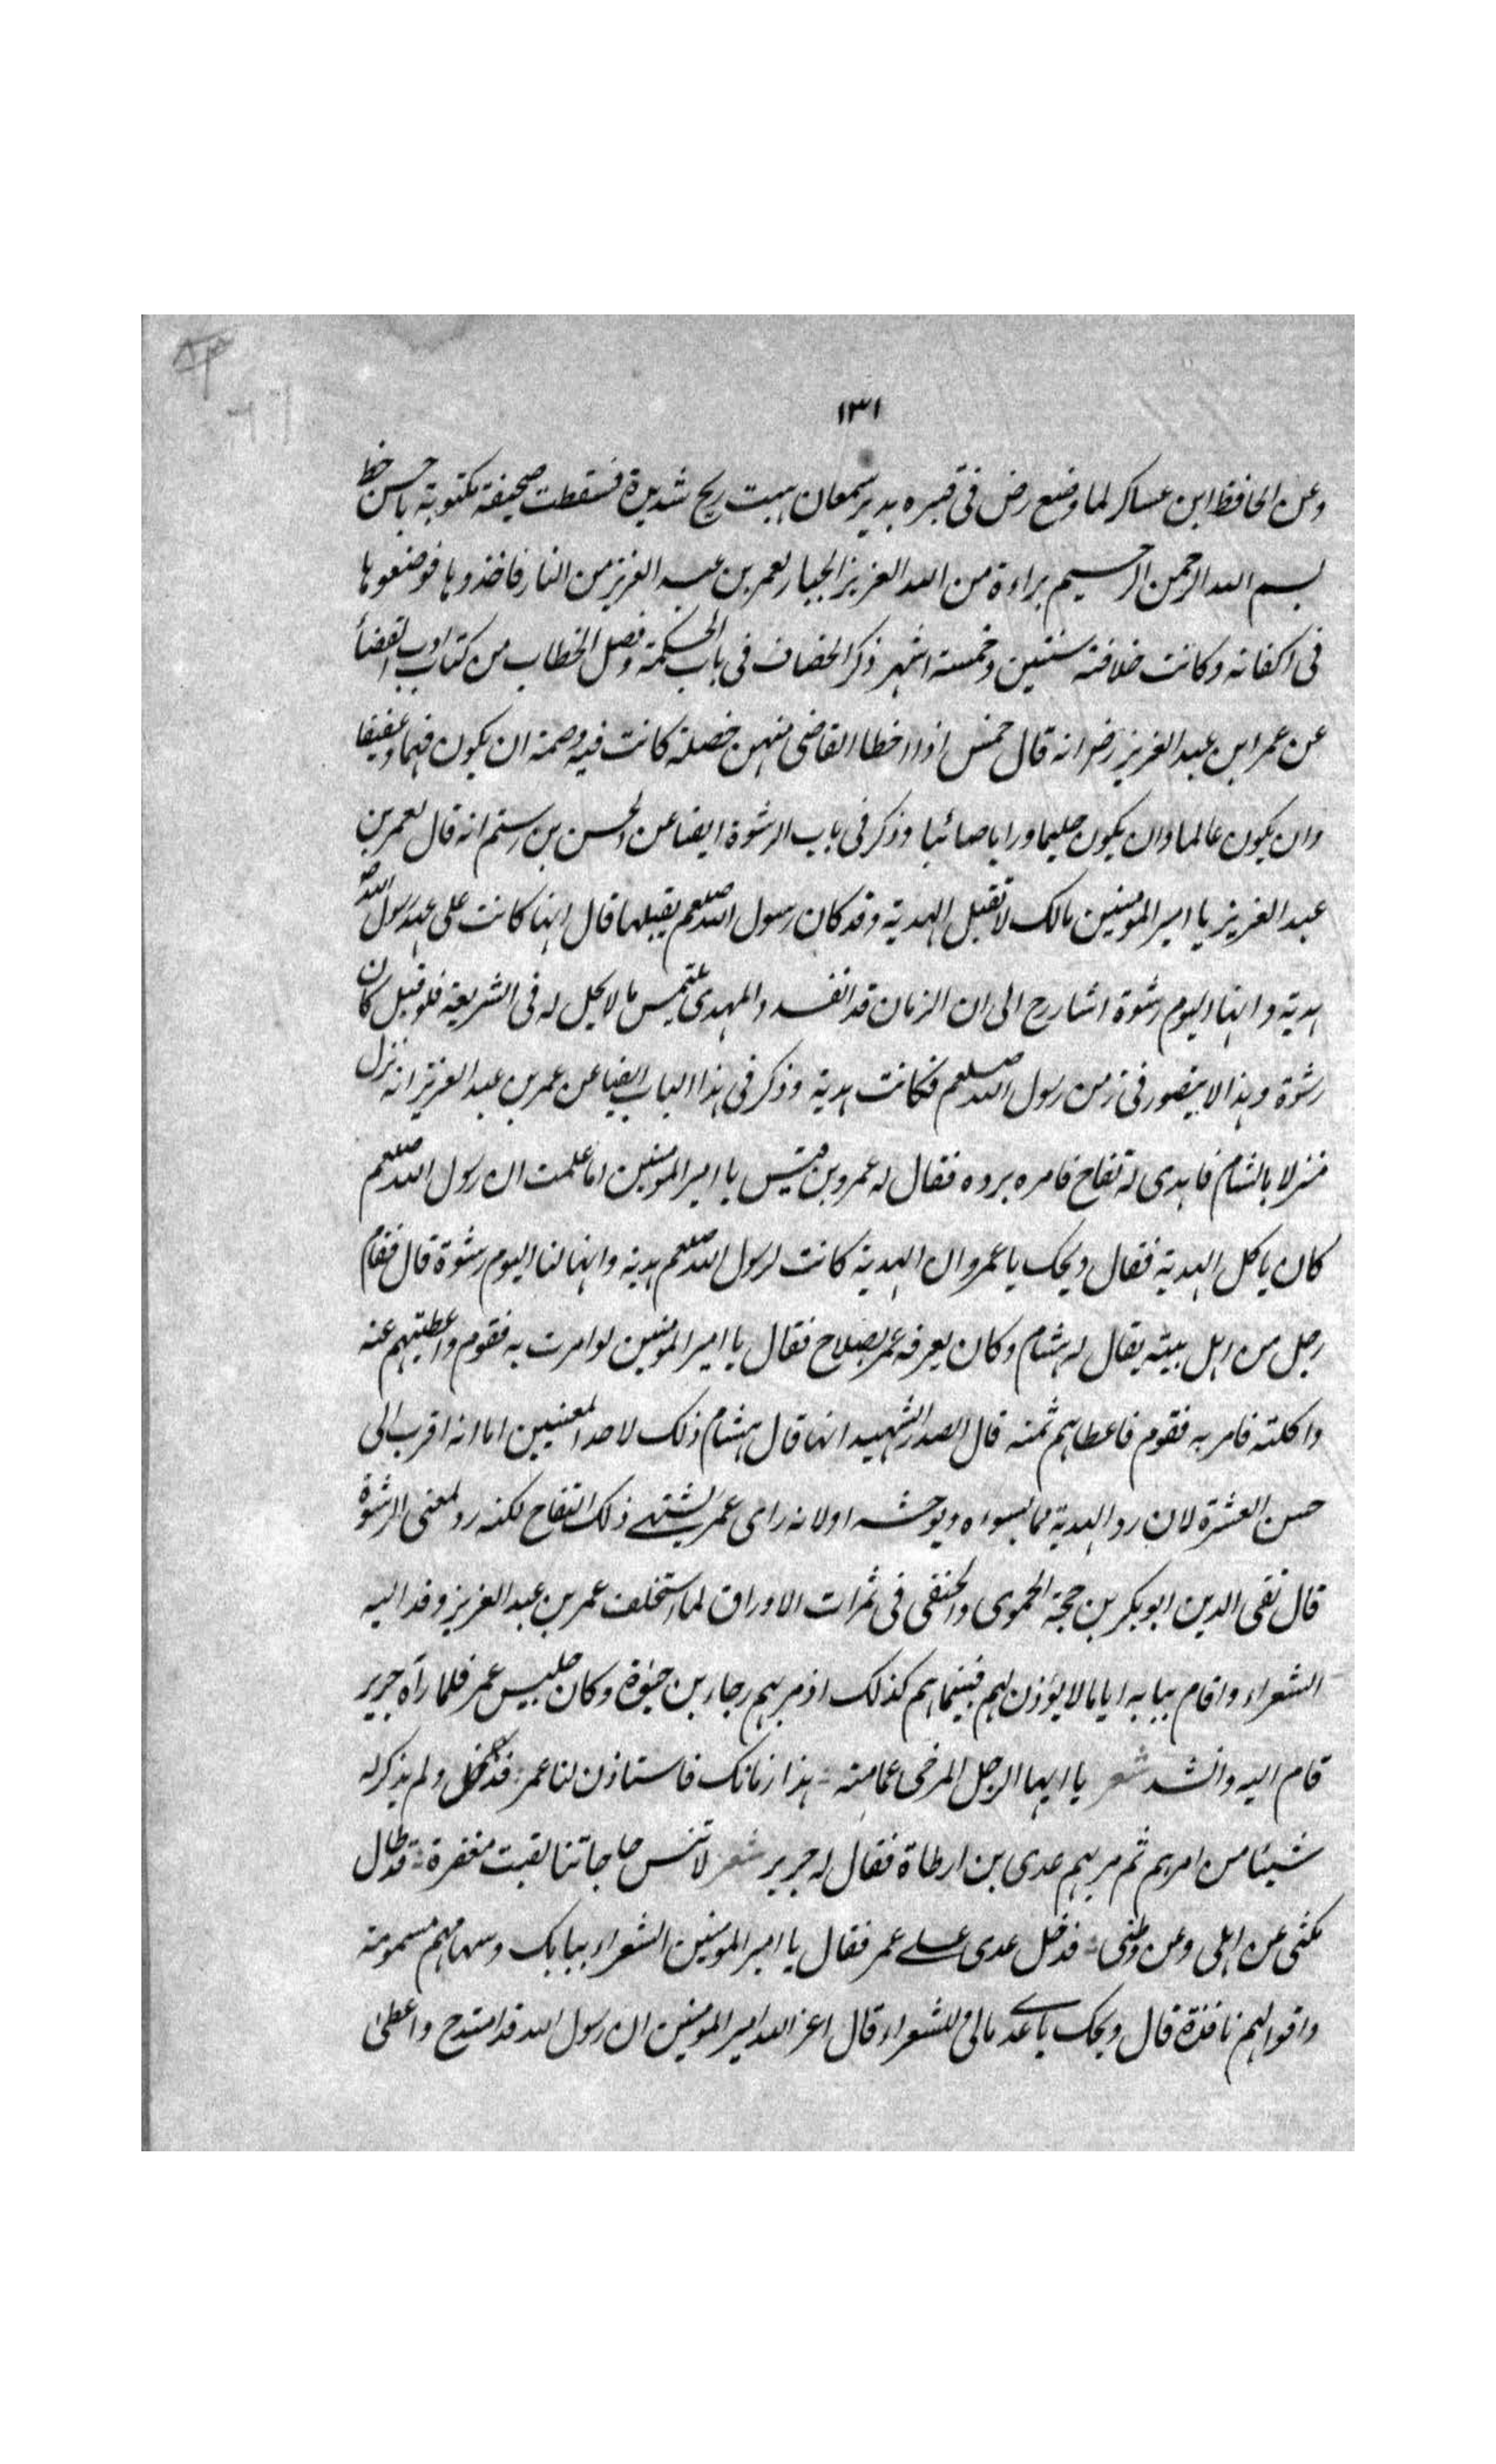 ١٣١
وعن الحافظ ابن عساكر لما وضع رض فى قبره بدير سمعان هبت ريح شديدة فسقطت صحيفة مكتوبة باحسن خط
بسم الله الرحمن الرحيم براءة من الله العزيز الجبار لعمر بن عبد العزيز من النار فاخذوها فوضعوها
فى اكفانه وكانت خلافته سنتين وخمسة اشهر ذكر الخصاف فى باب الحكمة وفصل الخطاب من كتاب ادب القضأ
عن عمر ابن عبد العزيز رضر انه قال خمس اذا اخطا القاضى منهن خصلة كانت فيه وصمة ان يكون فهما وعفيفا
وان يكون عالما وان يكون حليما ورايا صائبا وذكر فى باب الرشوة ايضا عن الحسن بن رستم انه قال لعمر بن
عبد العزيز يا امير المؤمنين مالك لا تقبل الهدية وقد كان رسول الله صلعم يقبلها قال انها كانت على عهد رسول الله صه
هدية وانها اليوم رشوة اشار رح الى ان الزمان قد انفسد والمهدى يلتمس ما لا يحل له فى الشريعة فلو قبل كان
رشوة وهذا لا يتصور فى زمن رسول الله صلعم فكانت هدية وذكر فى هذا الباب ايضا عن عمر بن عبد العزيز انه نزل
منزلا بالشام فاهدى له تفاح فامره برده فقال له عمرو بن قيس يا امير المؤمنين اما علمت ان رسول الله صلعم
كان ياكل الهدية فقال ويحك يا عمرو ان الهدية كانت لرسول الله صلعم هدية وانها لنا اليوم رشوة قال فقام
رجل من اهل بيته يقال له هشام وكان يعرفه عمر بصلاح فقال يا امير المؤمنين لو امرت به فقوم واعطيتهم عنه
واكلته فامر به فقوم فاعطاهم ثمنه قال الصدر الشهيد انما قال هشام ذلك لاحد المعنيين اما انه اقرب الى
حسن العشرة لان رد الهدية مما يسوءه ويوحشه او لانه راى عمر يشتهے ذلك التفاح لكنه رد لمعنى الرشوة
قال تقى الدين ابو بكر بن حجة الحموى والحنفى فى ثمرات الاوراق لما استخلف عمر بن عبد العزيز وفد اليه
الشعراء واقام ببابه اياما لا يؤذن لهم فبينما هم كذلك اذ مر بهم رجاء بن حيوة وكان جليس عمر فلما رآه جرير
قام اليه وانشد شعر يا ايها الرجل المرخى عمامته ؞ هذا زمانك فاستاذن لنا عمر ؞ فدخل ولم يذكر له
شيئا من امرهم ثم مر بهم عدى بن ارطاة فقال له جرير شعر لا تنس حاجاتنا لقيت مغفرة ؞ قد طال
مكثى عن اهلى وعن وطنى ؞ فدخل عدى علے عمر فقال يا امير المؤمنين الشعراء ببابك وسهامهم مسمومة
واقوالهم نافذة قال ويحك يا عدے مالى وللشعراء قال اعز الله امير المؤمنين ان رسول الله قد امتدح واعطى